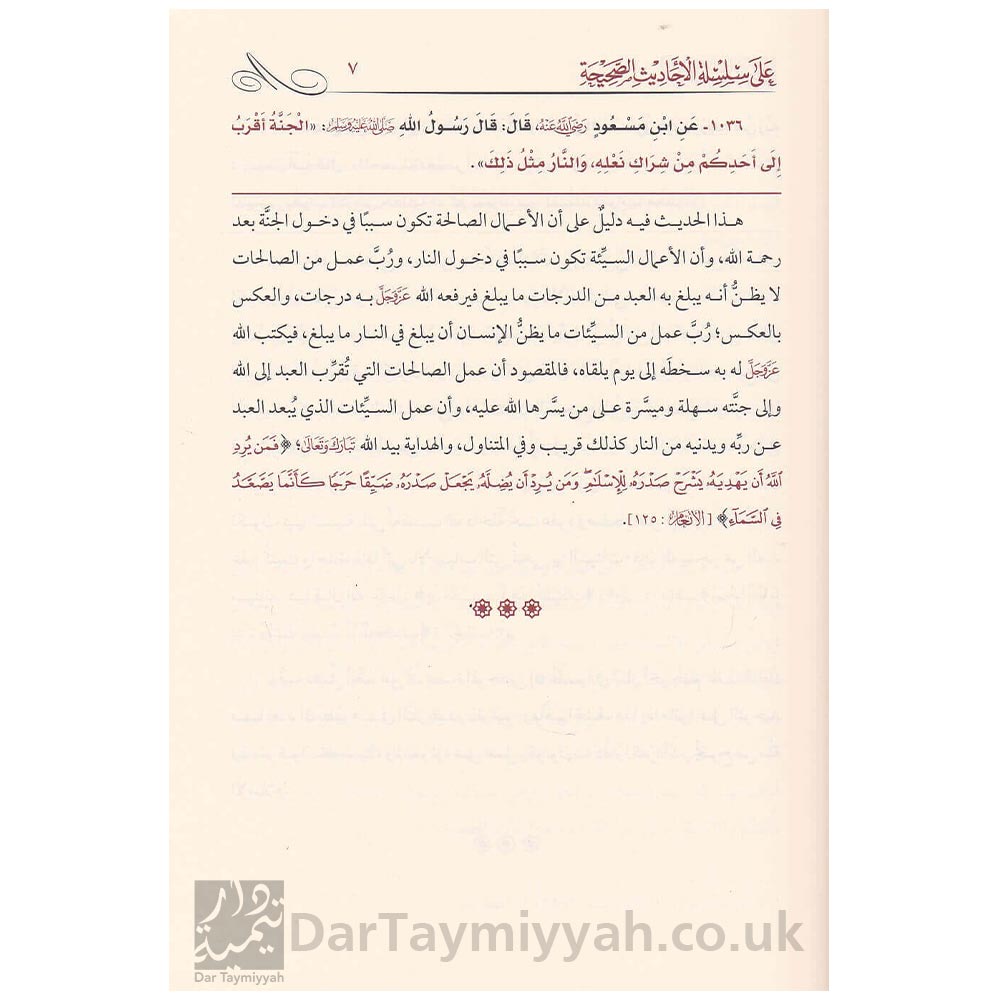 على سلسلة الأحاديث الصحيحة ٧
١٠٣٦- عَنِ ابْنِ مَسْعُودٍ رَضِيَ اللَّهُ عَنْهُ، قَالَ: قَالَ رَسُولُ اللهِ صَلَّى اللَّهُ عَلَيْهِ وَسَلَّمَ: «الْجَنَّةُ أَقْرَبُ
إِلَى أَحَدِكُمْ مِنْ شِرَاكِ نَعْلِهِ، وَالنَّارُ مِثْلُ ذَلِكَ».
هذا الحديث فيه دليلٌ على أن الأعمال الصالحة تكون سببًا في دخول الجنَّة بعد
رحمة الله، وأن الأعمال السيِّئة تكون سببًا في دخول النار، ورُبَّ عمل من الصالحات
لا يظنُّ أنه يبلغ به العبد من الدرجات ما يبلغ فيرفعه الله عَزَّوَجَلَّ به درجات، والعكس
بالعكس؛ رُبَّ عمل من السيِّئات ما يظنُّ الإنسان أن يبلغ في النار ما يبلغ، فيكتب الله
عَزَّوَجَلَّ له به سخطَه إلى يوم يلقاه، فالمقصود أن عمل الصالحات التي تُقرِّب العبد إلى الله
وإلى جنَّته سهلة وميسَّرة على من يسَّرها الله عليه، وأن عمل السيِّئات الذي يُبعد العبد
عن ربِّه ويدنيه من النار كذلك قريب وفي المتناول، والهداية بيد الله تَبَارَكَ وَتَعَالَى؛ ﴿فَمَن يُرِدِ
ٱللَّهُ أَن يَهْدِيَهُۥ يَشْرَحْ صَدْرَهُۥ لِلْإِسْلَٰمِۖ وَمَن يُرِدْ أَن يُضِلَّهُۥ يَجْعَلْ صَدْرَهُۥ ضَيِّقًا حَرَجًا كَأَنَّمَا يَصَّعَّدُ
فِي ٱلسَّمَآءِ﴾ [الأنعام: ١٢٥].
دار تيمية
Dar Taymiyyah
DarTaymiyyah.co.uk